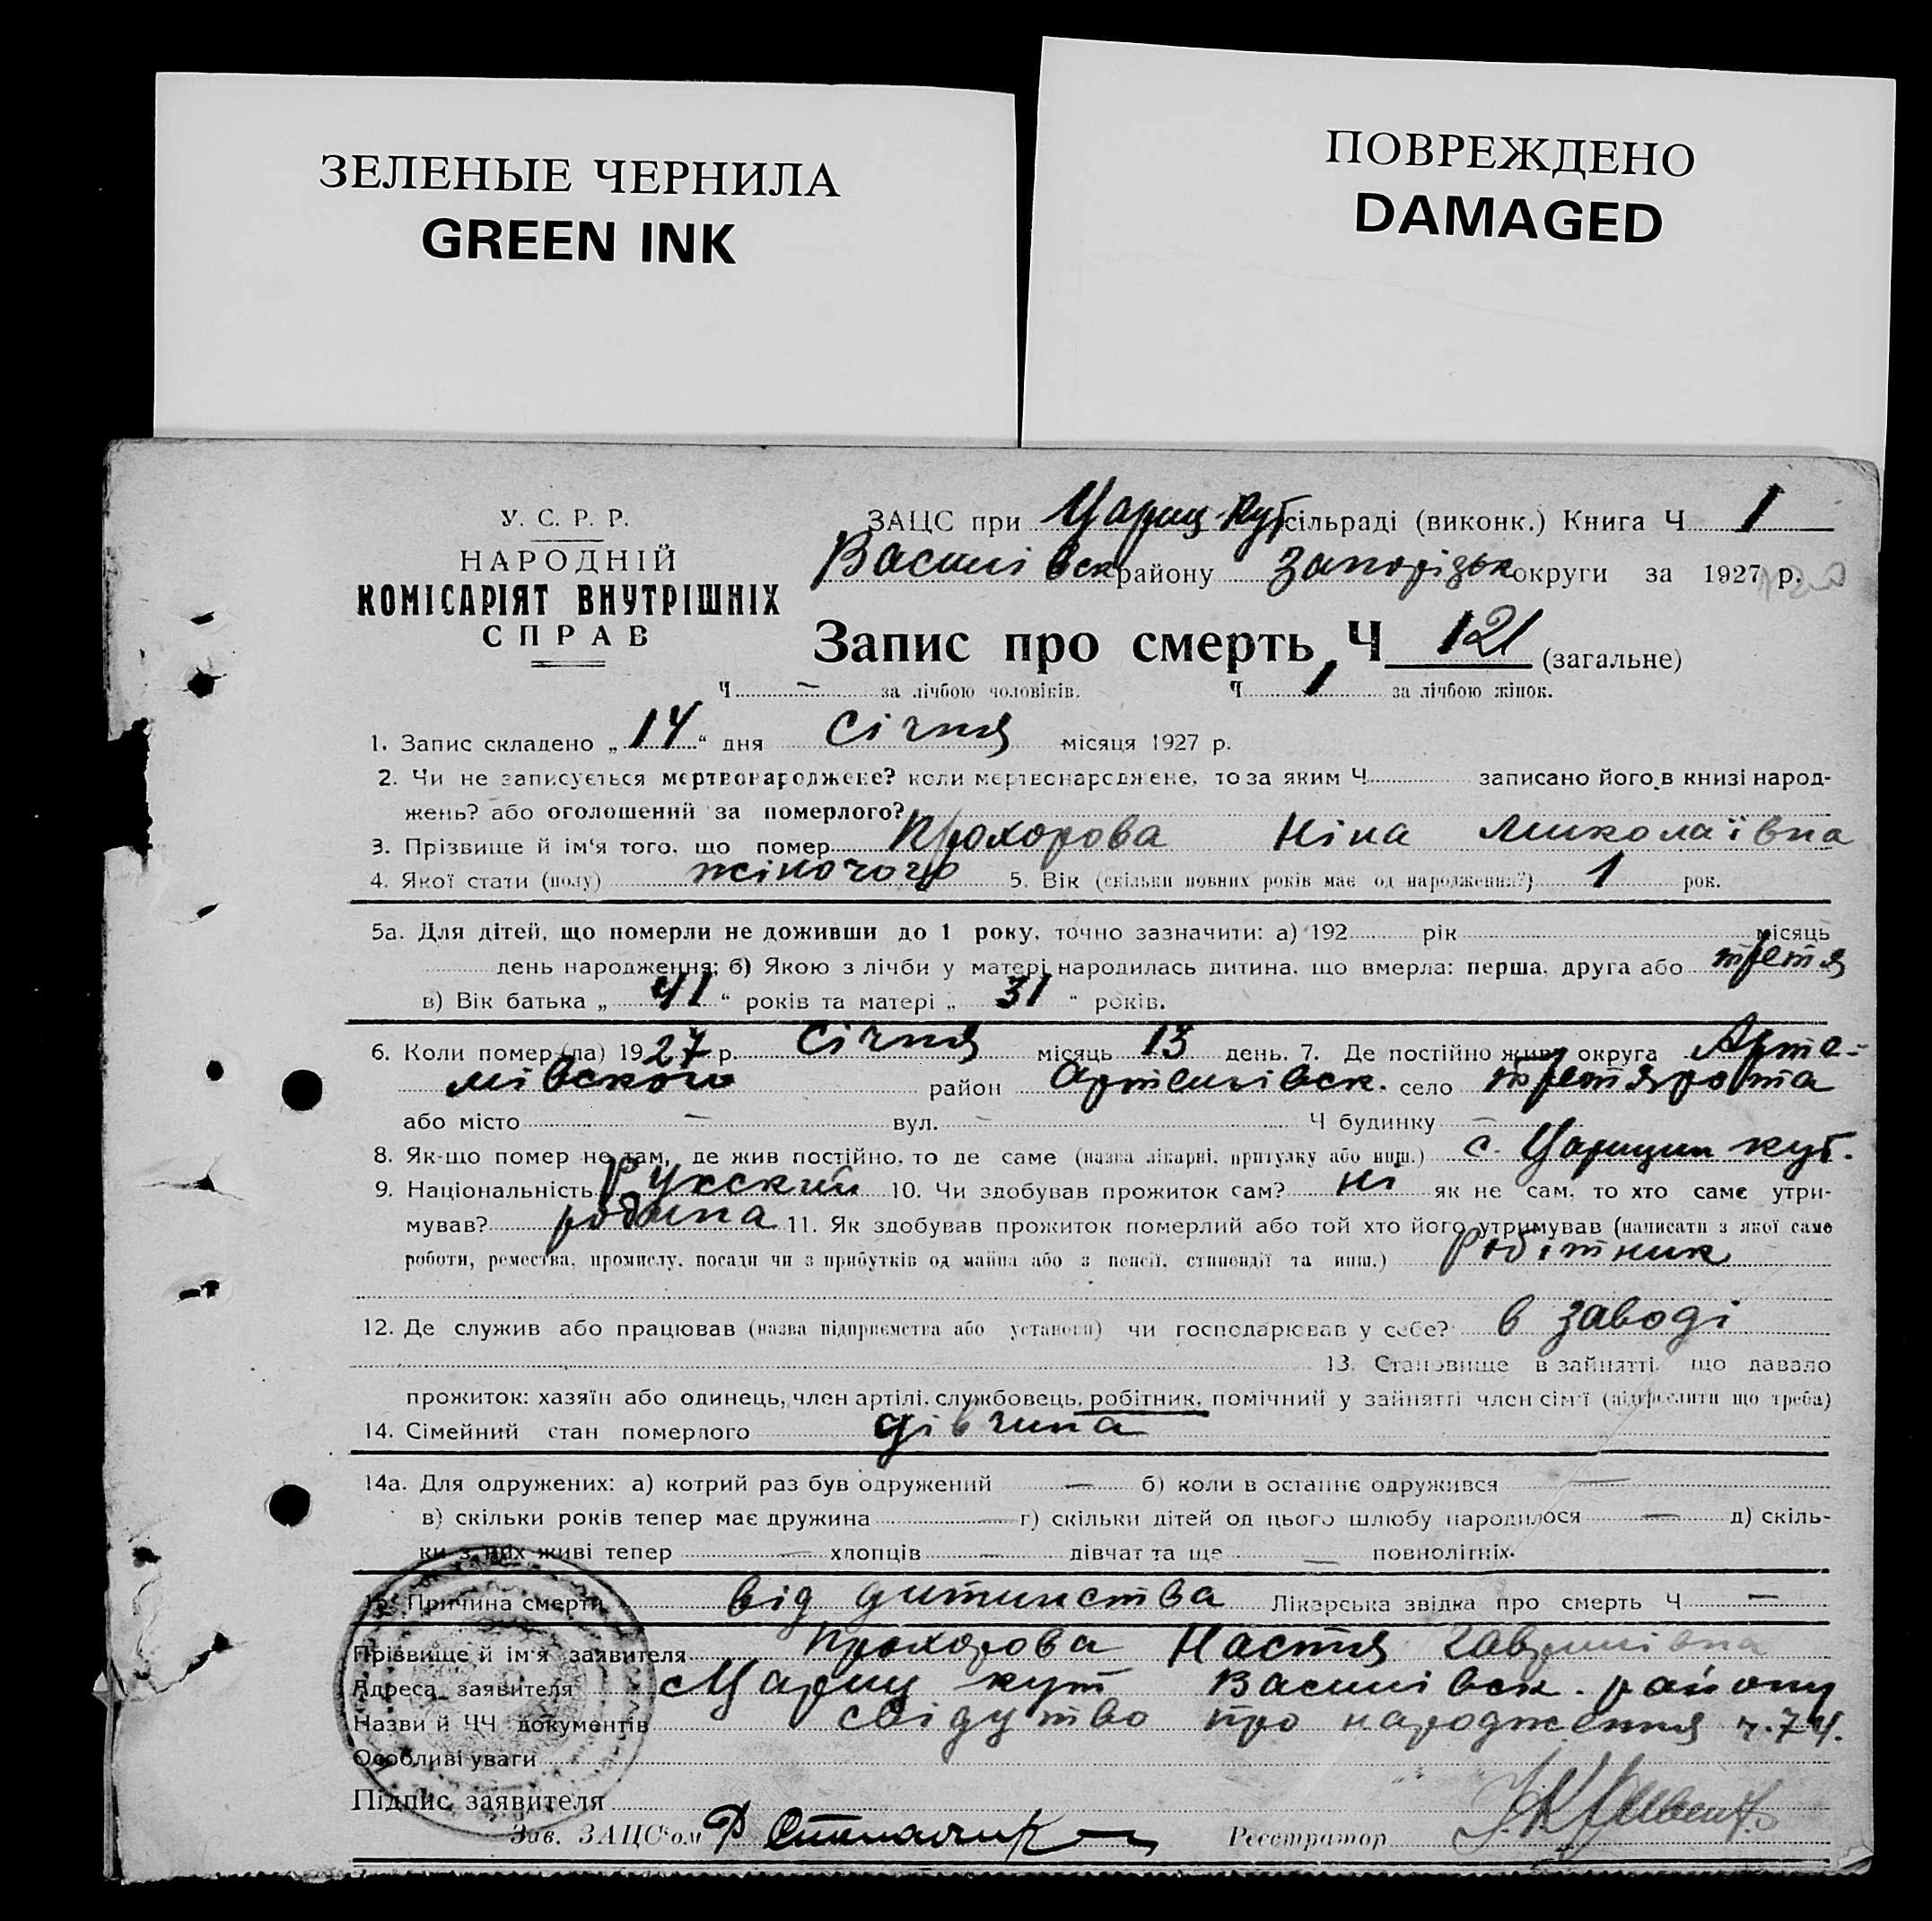 ЗЕЛЕНЫЕ ЧЕРНИЛА
GREEN INK
ПОВРЕЖДЕНО
DAMAGED
У. С. Р. Р.
НАРОДНІЙ
КОМІСАРІЯТ ВНУТРІШНІХ
СПРАВ
ЗАЦС при Цариц-Кут сільраді (виконк.) Книга Ч 1
Василівськ району Запорізьк округи за 1927 р.
Запис про смерть Ч 121 (загальне)
Ч — за лічбою чоловіків. Ч 1 за лічбою жінок.
1. Запис складено „14“ дня Січня місяця 1927 р.
2. Чи не записується мертвонароджене? коли мертвонароджене, то за яким Ч записано його в книзі народ-
жень? або оголошений за померлого?
3. Прізвище й ім‘я того, що помер Прохорова Ніна Миколаївна
4. Якої стати (полу) жіночого 5. Вік (скільки повних років має од народження?) 1 рок.
5а. Для дітей, що померли не доживши до 1 року, точно зазначити: а) 192 рік місяць
день народження; б) Якою з лічби у матері народилась дитина, що вмерла: перша, друга або третя
в) Вік батька „41“ років та матері „31“ років.
6. Коли помер (ла) 1927 р. Січня місяць 13 день. 7. Де постійно жив округа Арте-
мівского район Артемівск. село третя рота
або місто — вул. — Ч будинку —
8. Як-що помер не там, де жив постійно, то де саме (назва лікарні, притулку або инш.) с. Царицин кут.
9. Національність Руский 10. Чи здобував прожиток сам? ні як не сам, то хто саме утри-
мував? родина 11. Як здобував прожиток померлий або той хто його утримував (написати з якої саме
роботи, ремества, промислу, посади чи з прибутків од майна або з пенсії, стипендії та инш.) Робітник
12. Де служив або працював (назва підприємства або установи) чи господарював у себе? в заводі
13. Становище в зайнятті, що давало
прожиток: хазяїн або одинець, член артілі, службовець, робітник, помічний у зайнятті член сім‘ї (підкреслити що треба)
14. Сімейний стан померлого дівчина
14а. Для одружених: а) котрий раз був одружений — б) коли в останнє одружився —
в) скільки років тепер має дружина — г) скільки дітей од цього шлюбу народилося — д) скіль-
ки з них живі тепер — хлопців — дівчат та ще — повнолітніх.
15. Причина смерти від дитинства Лікарська звідка про смерть Ч —
Прізвище й ім‘я заявителя Прохорова Настя Гаврилівна
Адреса заявителя Цариц кут Василівськ. району
Назви й ЧЧ документів свідутво про народження ч. 74.
Особливі уваги
Підпис заявителя
Зав. ЗАЦС‘ом
Реєстратор